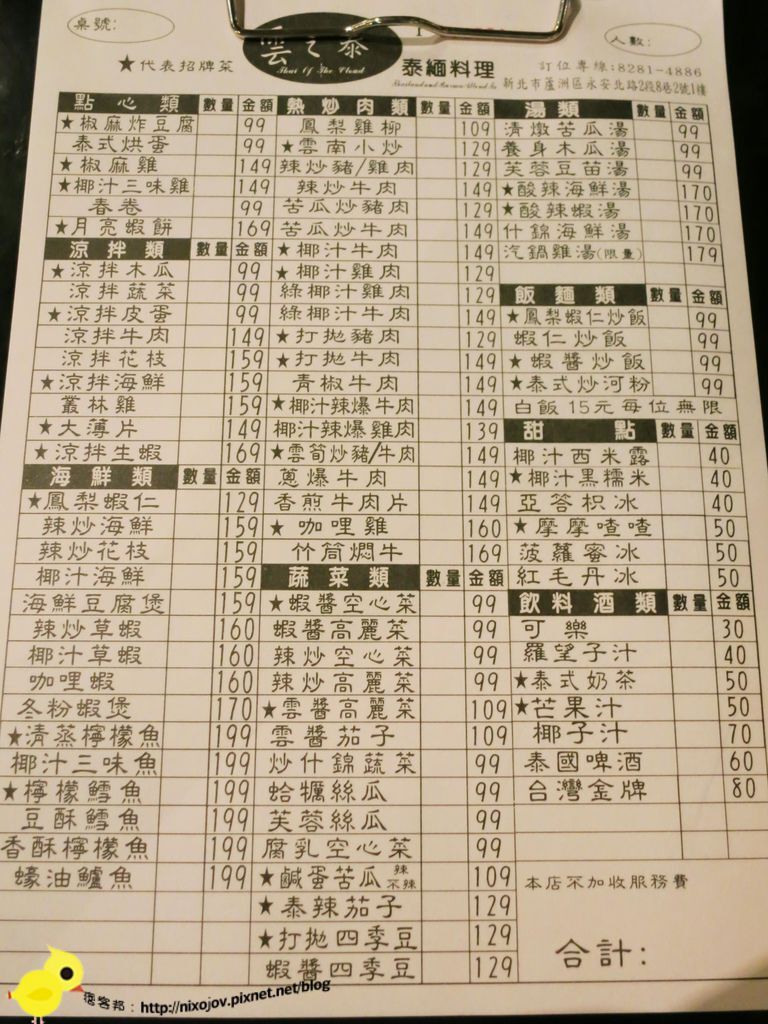 桌號:
雲之泰
Thai Of The Cloud
人數:
★代表招牌菜
泰緬料理
訂位專線:8281-4886
新北市蘆洲區永安北路2段8巷2號1樓
點心類 數量 金額
★椒麻炸豆腐 99
泰式烘蛋 99
★椒麻雞 149
★椰汁三味雞 149
春卷 99
★月亮蝦餅 169
涼拌類 數量 金額
★涼拌木瓜 99
涼拌蔬菜 99
★涼拌皮蛋 99
涼拌牛肉 149
涼拌花枝 159
★涼拌海鮮 159
叢林雞 159
★大薄片 149
★涼拌生蝦 169
海鮮類 數量 金額
★鳳梨蝦仁 129
辣炒海鮮 159
辣炒花枝 159
椰汁海鮮 159
海鮮豆腐煲 159
辣炒草蝦 160
椰汁草蝦 160
咖哩蝦 160
冬粉蝦煲 170
★清蒸檸檬魚 199
椰汁三味魚 199
★檸檬鱈魚 199
豆酥鱈魚 199
香酥檸檬魚 199
蠔油鱸魚 199
熱炒肉類 數量 金額
鳳梨雞柳 109
★雲南小炒 129
辣炒豬/雞肉 129
辣炒牛肉 149
苦瓜炒豬肉 129
苦瓜炒牛肉 149
★椰汁牛肉 149
★椰汁雞肉 129
綠椰汁雞肉 129
綠椰汁牛肉 149
★打拋豬肉 129
★打拋牛肉 149
青椒牛肉 149
★椰汁辣爆牛肉 149
椰汁辣爆雞肉 139
★雲筍炒豬/牛肉 149
蔥爆牛肉 149
香煎牛肉片 149
★咖哩雞 160
竹筒燜牛 169
蔬菜類 數量 金額
★蝦醬空心菜 99
蝦醬高麗菜 99
辣炒空心菜 99
辣炒高麗菜 99
★雲醬高麗菜 109
雲醬茄子 109
炒什錦蔬菜 99
蛤蠣絲瓜 99
芙蓉絲瓜 99
腐乳空心菜 99
★鹹蛋苦瓜 辣 不辣 109
★泰辣茄子 129
★打拋四季豆 129
蝦醬四季豆 129
湯類 數量 金額
清燉苦瓜湯 99
養身木瓜湯 99
芙蓉豆苗湯 99
★酸辣海鮮湯 170
★酸辣蝦湯 170
什錦海鮮湯 170
汽鍋雞湯(限量) 179
飯麵類 數量 金額
★鳳梨蝦仁炒飯 99
蝦仁炒飯 99
★蝦醬炒飯 99
★泰式炒河粉 99
白飯15元每位無限
甜點 數量 金額
椰汁西米露 40
★椰汁黑糯米 40
亞答枳冰 40
★摩摩喳喳 50
菠蘿蜜冰 50
紅毛丹冰 50
飲料酒類 數量 金額
可樂 30
羅望子汁 40
★泰式奶茶 50
★芒果汁 50
椰子汁 70
泰國啤酒 60
台灣金牌 80
本店不加收服務費
合計:
痞客邦:http://nixojov.pixnet.net/blog